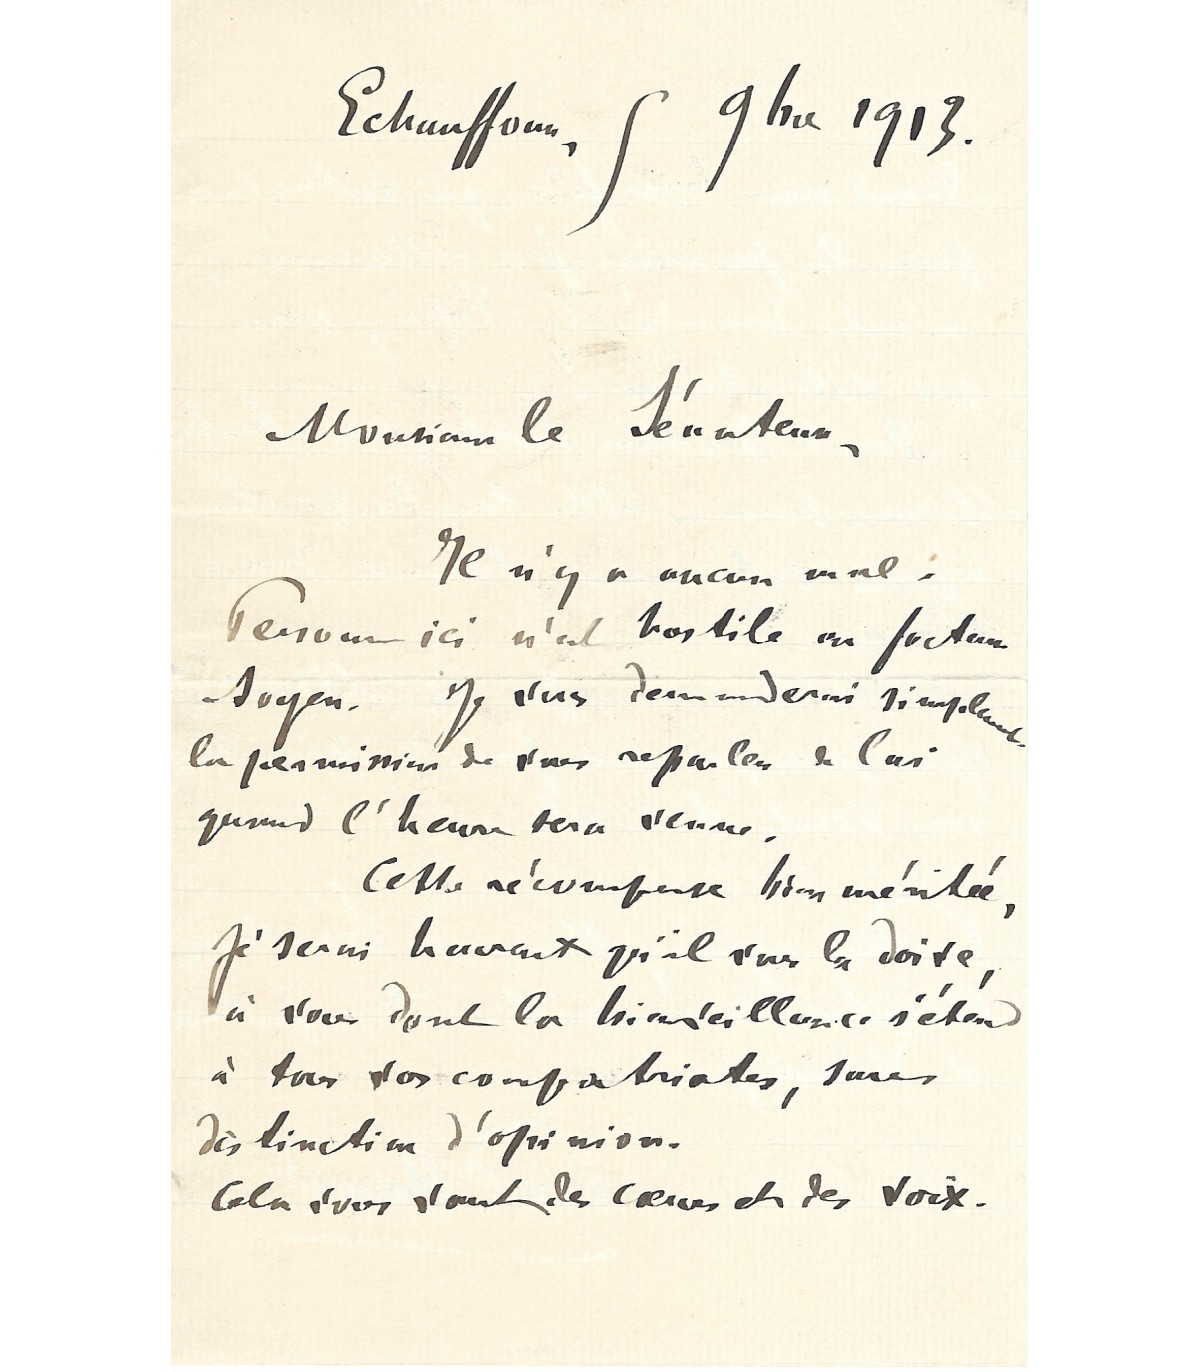 Echauffour, 5 9bre 1913.
Monsieur le Sénateur,
Il n'y a aucun mal.
Personne ici n'est hostile au facteur
Soyer. Je vous demanderai simplement
la permission de vous reparler de lui
quand l'heure sera venue.
Cette récompense bien méritée,
je serai heureux qu'il vous la doive,
à vous dont la bienveillance s'étend
à tous vos compatriotes, sans
distinction d'opinion.
Cela vous vaut des cœurs et des voix.